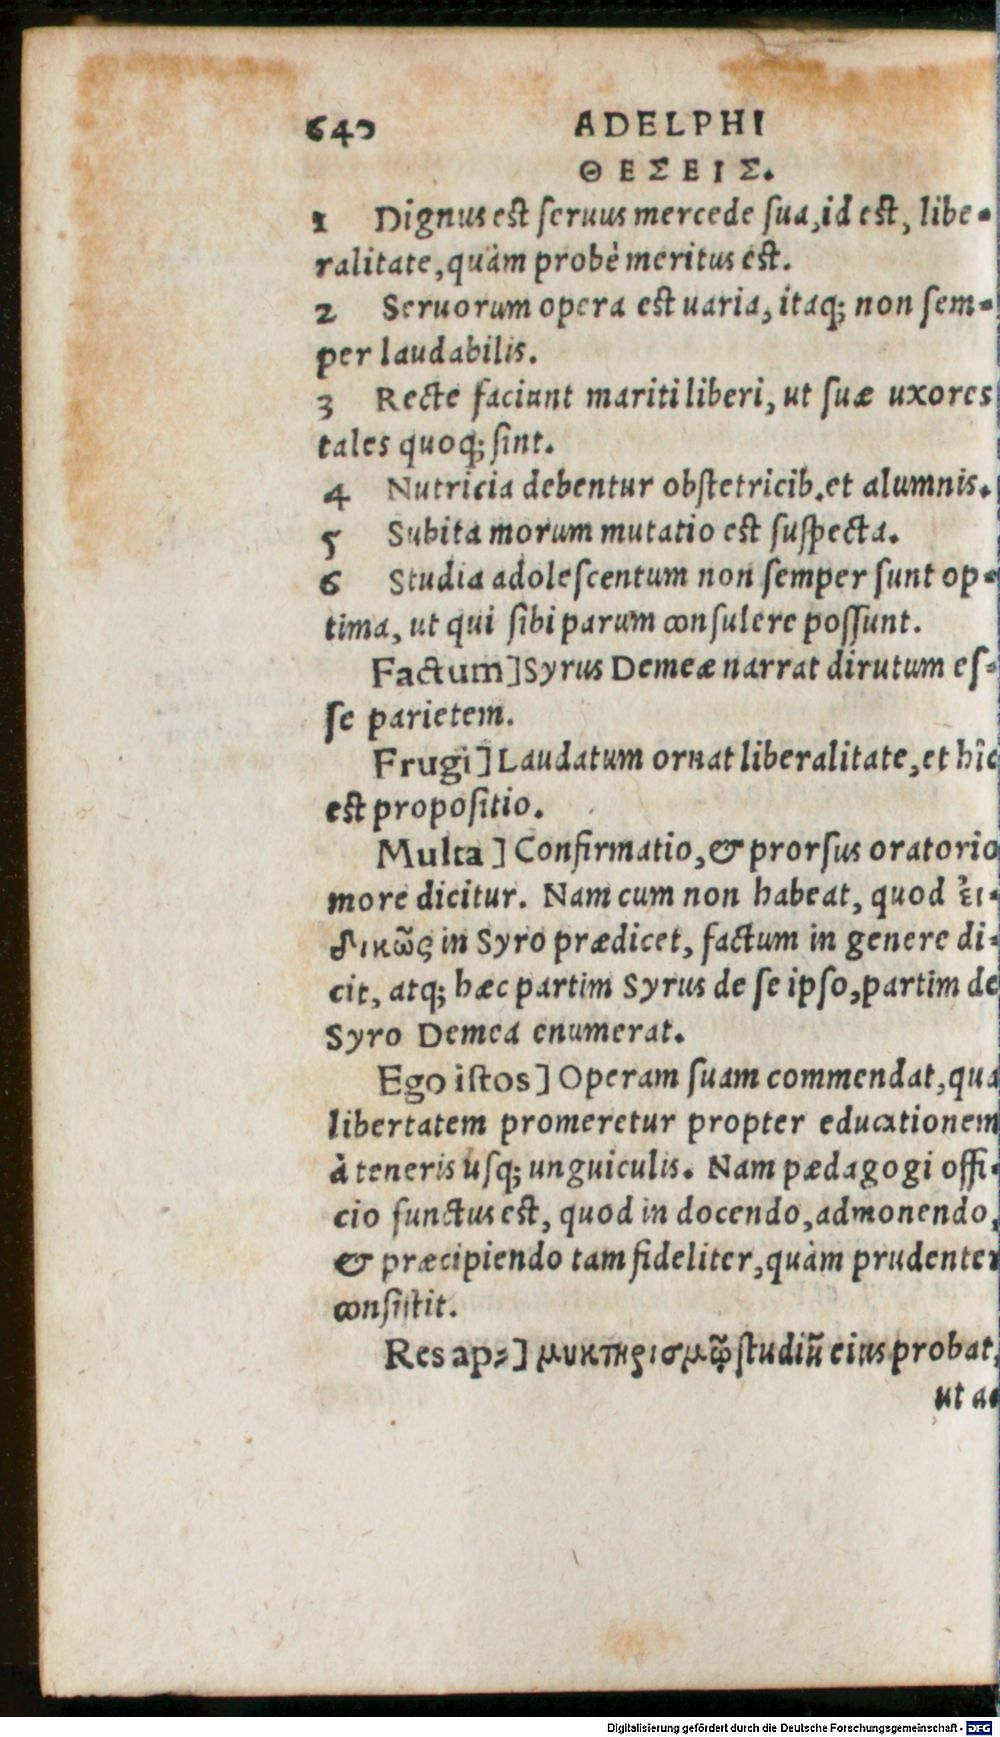 640 ADELPHI
ΘΕΣΕΙΣ.
1 Dignus est seruus mercede sua, id est, libe-
ralitate, quàm probè meritus est.
2 Seruorum opera est uaria, itaq; non sem-
per laudabilis.
3 Recte faciunt mariti liberi, ut suæ uxores
tales quoq; sint.
4 Nutricia debentur obstetricib. et alumnis.
5 Subita morum mutatio est suspecta.
6 Studia adolescentum non semper sunt op-
tima, ut qui sibi parum consulere possunt.
Factum] Syrus Demeæ narrat dirutum es-
se parietem.
Frugi] Laudatum ornat liberalitate, et hîc
est propositio.
Multa] Confirmatio, & prorsus oratorio
more dicitur. Nam cum non habeat, quod ἐι-
δικῶς in Syro prædicet, factum in genere di-
cit, atq; hæc partim Syrus de se ipso, partim de
Syro Demea enumerat.
Ego istos] Operam suam commendat, qua
libertatem promeretur propter educationem
à teneris usq; unguiculis. Nam pædagogi offi-
cio functus est, quod in docendo, admonendo,
& præcipiendo tam fideliter, quàm prudenter
consistit.
Res ap⸗] μυκτηρισμῷ studiũ eius probat,
ut a-
Digitalisierung gefördert durch die Deutsche Forschungsgemeinschaft - DFG